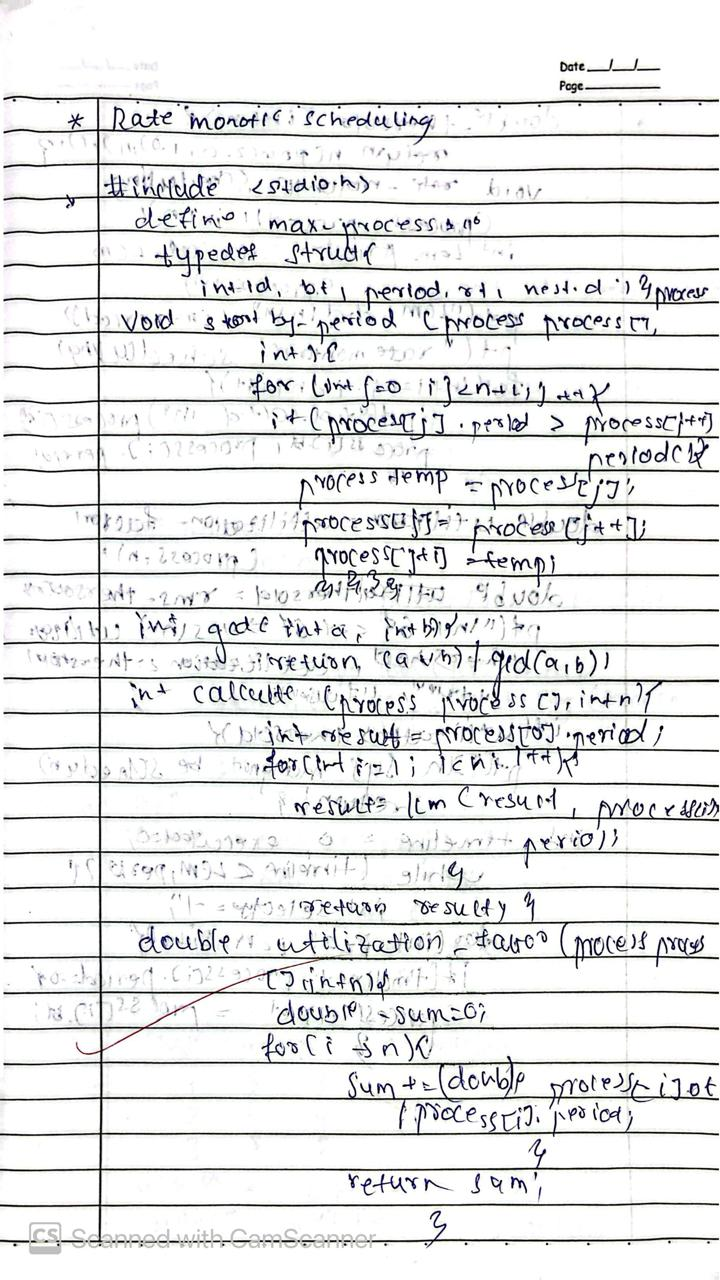 Date__/__/__
Page
* Rate monotic scheduling
#include <stdio.h>
define max-process 10
typedef struct{
int id, bt, period, rt, nest.d ;} process
void sort by-period (process process[],
int){
for (int j=0 ; j<n+i; j++){
if (process[j].period > process[j++]
period){
process temp = process[j];
process[j] = process[j++];
process[j+i] = temp;
}}}}
int gcd( int a, int b){
return (a*b) / gcd(a,b))
int calculte (process process [], int n){
int result = process[0].period;
for(int i=1; i<n; i++){
result = lcm (result, process[i]
period);
}
return result; }
double utilization - factor (process process
[], int n){
double sum=0;
for( i < n){
sum += (double process[i] bt
/ process[i]. period;
}
return sum;
}
CS Scanned with CamScanner